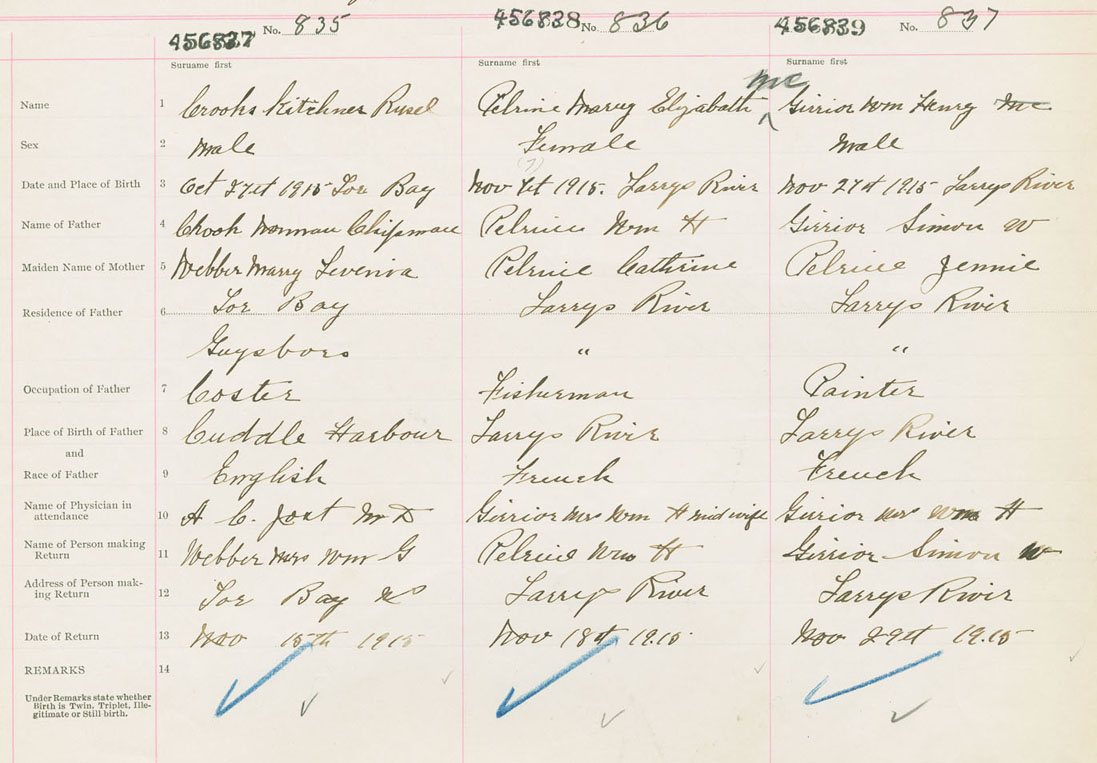 456837 No. 835 456838 No. 836 456839 No. 837
Surname first Surname first Surname first
Name 1 Crooks Kitchner Rusel Pelrine Marry Elizabath Mc ^ Girrior Wm Henry Mc
Sex 2 Male Female Male
Date and Place of Birth 3 Oct 27st 1915 Tor Bay Nov 1st (7) 1915. Larrys River Nov 27st 1915 Larrys River
Name of Father 4 Crook Norman Chipman Pelrine Wm H Girrior Simon W
Maiden Name of Mother 5 Webber Marry Levenia Pelrine Cathrine Pelrine Jennie
Residence of Father 6 Tor Bay Larrys River Larrys River
Guysboro " "
Occupation of Father 7 Coster Fisherman Painter
Place of Birth of Father 8 Cuddle Harbour Larrys River Larrys River
and
Race of Father 9 English French French
Name of Physician in attendance 10 A C. Jost M D Girrior Mrs Wm H midwife Girrior Mrs Wm H
Name of Person making Return 11 Webber Mrs Wm G Pelrine Wm H Girrior Simon W
Address of Person making Return 12 Tor Bay Larrys River Larrys River
Date of Return 13 Nov 15th 1915 Nov 18st 1915 Nov 29st 1915
REMARKS 14
Under Remarks state whether
Birth is Twin, Triplet, Ille-
gitimate or Still birth.